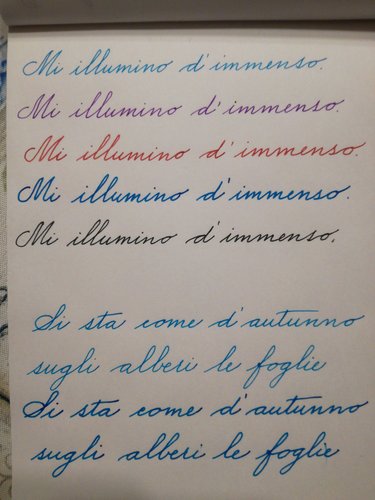 Mi illumino d'immenso.
Mi illumino d'immenso.
Mi illumino d'immenso.
Mi illumino d'immenso.
Mi illumino d'immenso.
Si sta come d'autunno
sugli alberi le foglie
Si sta come d'autunno
sugli alberi le foglie